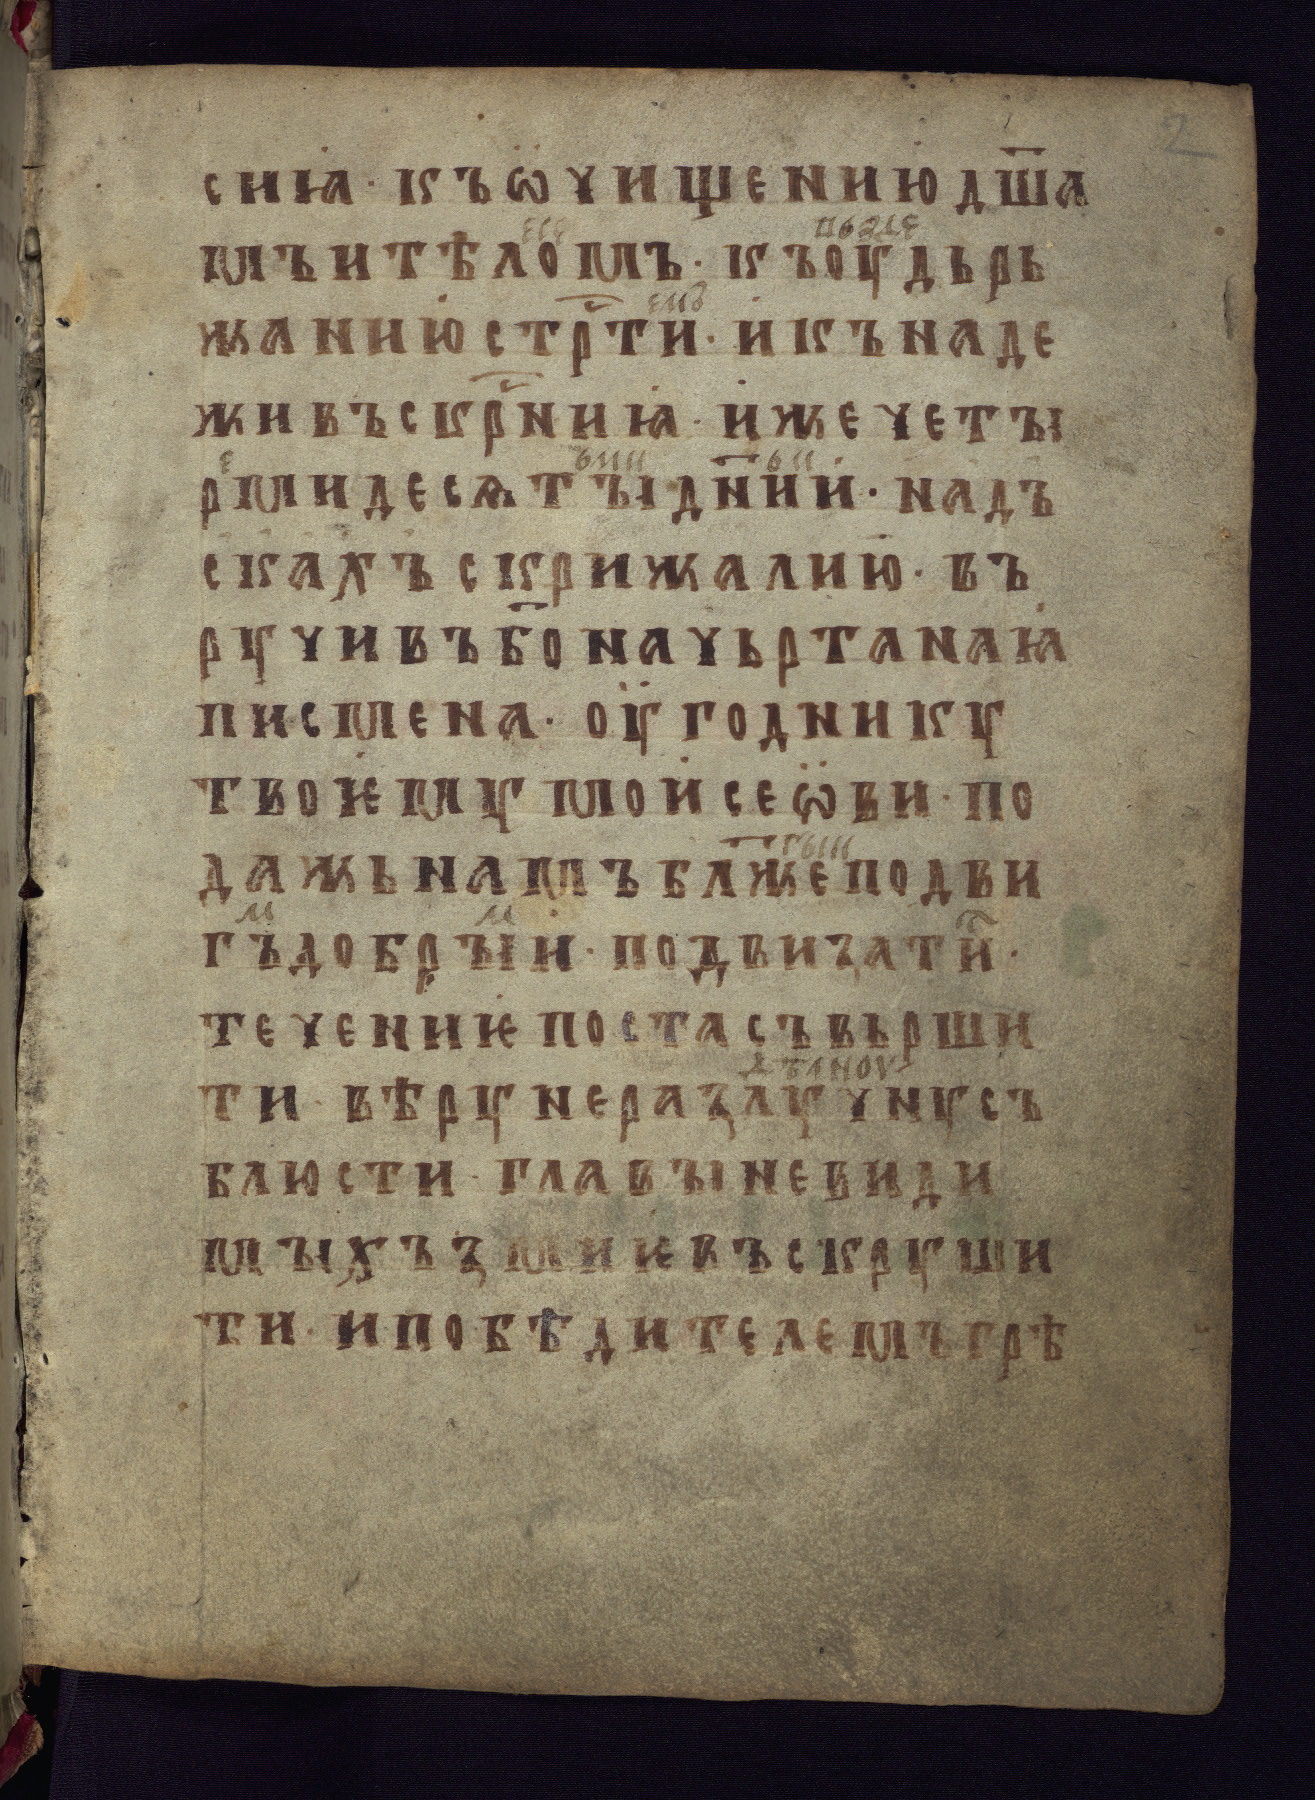 2
сниꙗ · къѡчищению дш҃а
мъ и тѣломъ · къ оудьрь
жанию стрⷭ҇ти · и къ наде
жи въскрⷭ҇ниꙗ · иже четꙑ
рмидесѧтꙑ дн҃ии · надъ
скахъ скрижалию · въ
рꙋчи въ б҃о начьртанаꙗ
писмена · оугодникꙋ
твоѥмꙋ моисеѡви · по
дажь намъ бл҃же подви
гъ добрꙑи · подвизати ·
течениѥ поста съвьрши
ти · вѣрꙋ неразлꙋчнꙋ съ
блюсти · главꙑ невиди
мꙑхъ змиѥвъ скрꙋши
ти · и побѣдителемъ грѣ